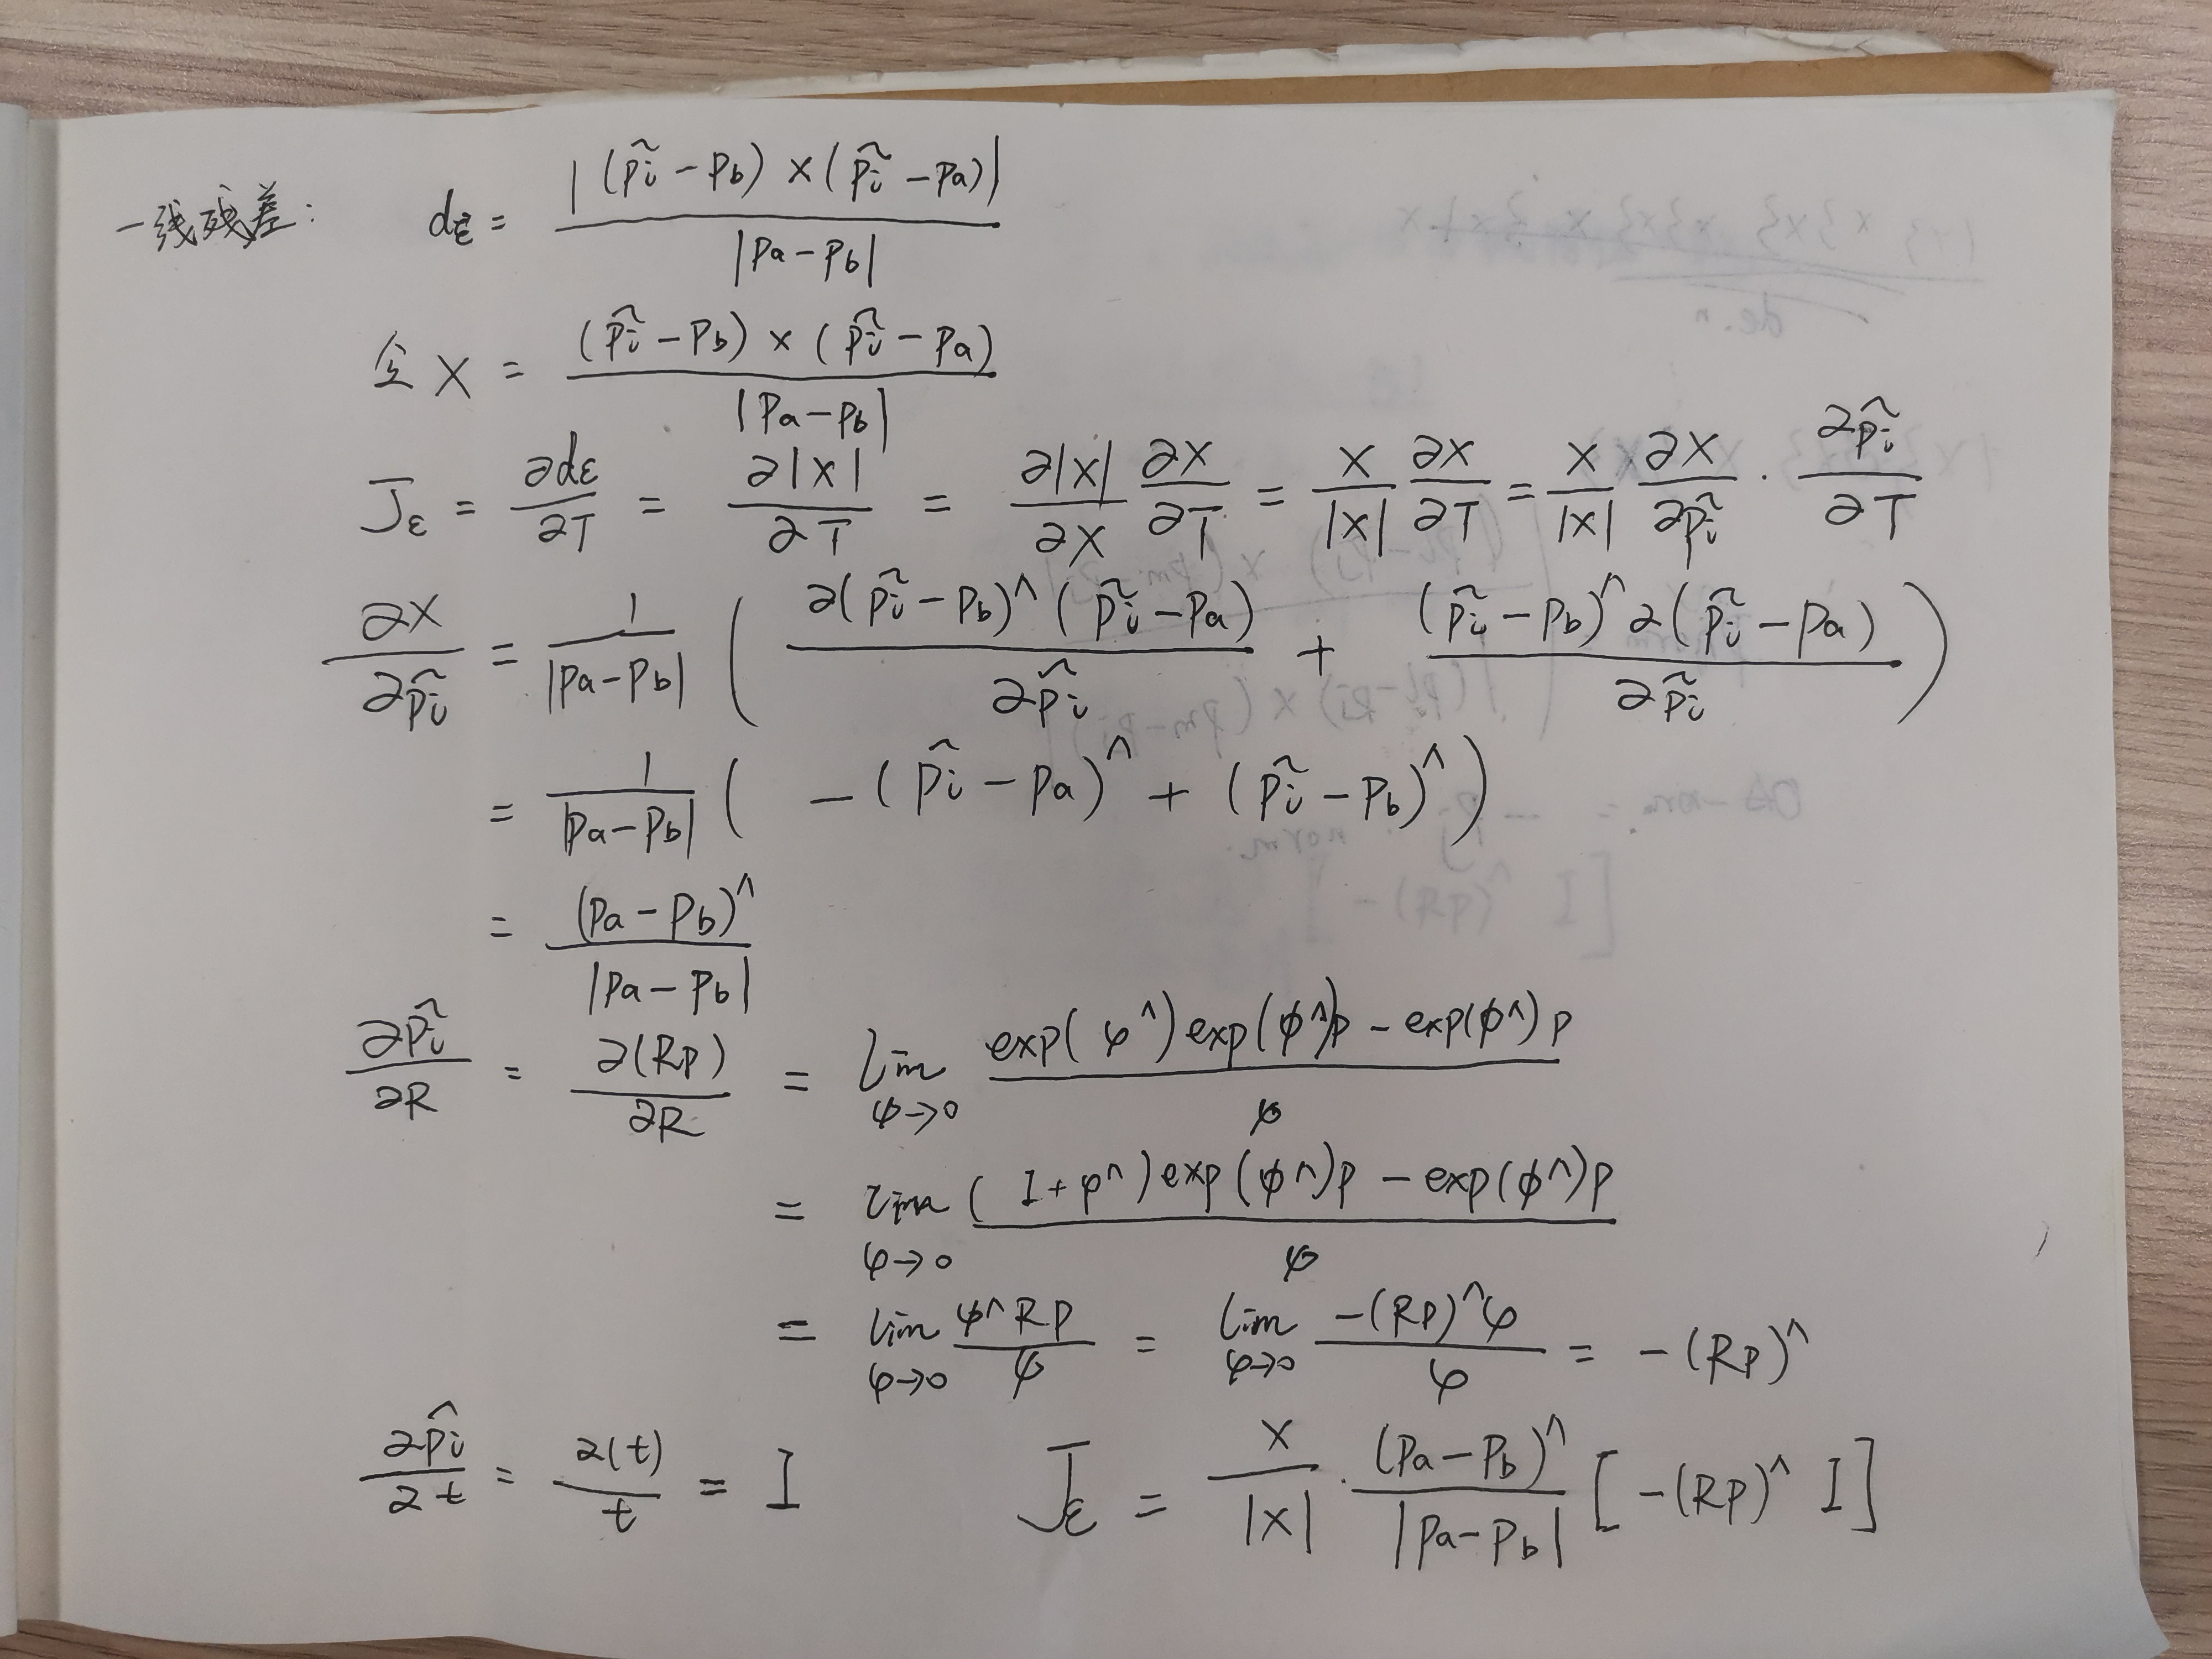 一线残差: dε = |(p̃i − pb) × (p̃i − pa)| / |pa − pb|
令 X = (p̃i − pb) × (p̃i − pa) / |pa − pb|
Jε = ∂dε/∂T = ∂|X|/∂T = ∂|X|/∂X ∂X/∂T = X/|X| ∂X/∂T = X/|X| ∂X/∂p̃i · ∂p̃i/∂T
∂X/∂p̃i = 1/|pa − pb| ( ∂(p̃i − pb)^ (p̃i − pa)/∂p̃i + (p̃i − pb)^ ∂(p̃i − pa)/∂p̃i )
= 1/|pa − pb| ( − (p̃i − pa)^ + (p̃i − pb)^ )
= (pa − pb)^ / |pa − pb|
∂p̃i/∂R = ∂(Rp)/∂R = lim φ→0 exp(φ^) exp(ϕ^)p − exp(ϕ^)p / φ
= lim φ→0 (I + φ^) exp(ϕ^)p − exp(ϕ^)p / φ
= lim φ→0 φ^Rp / φ = lim φ→0 −(Rp)^φ / φ = −(Rp)^
∂p̂i/∂t = ∂(t)/t = I Jε = X/|X| · (pa − pb)^/|pa − pb| [ −(Rp)^ I ]